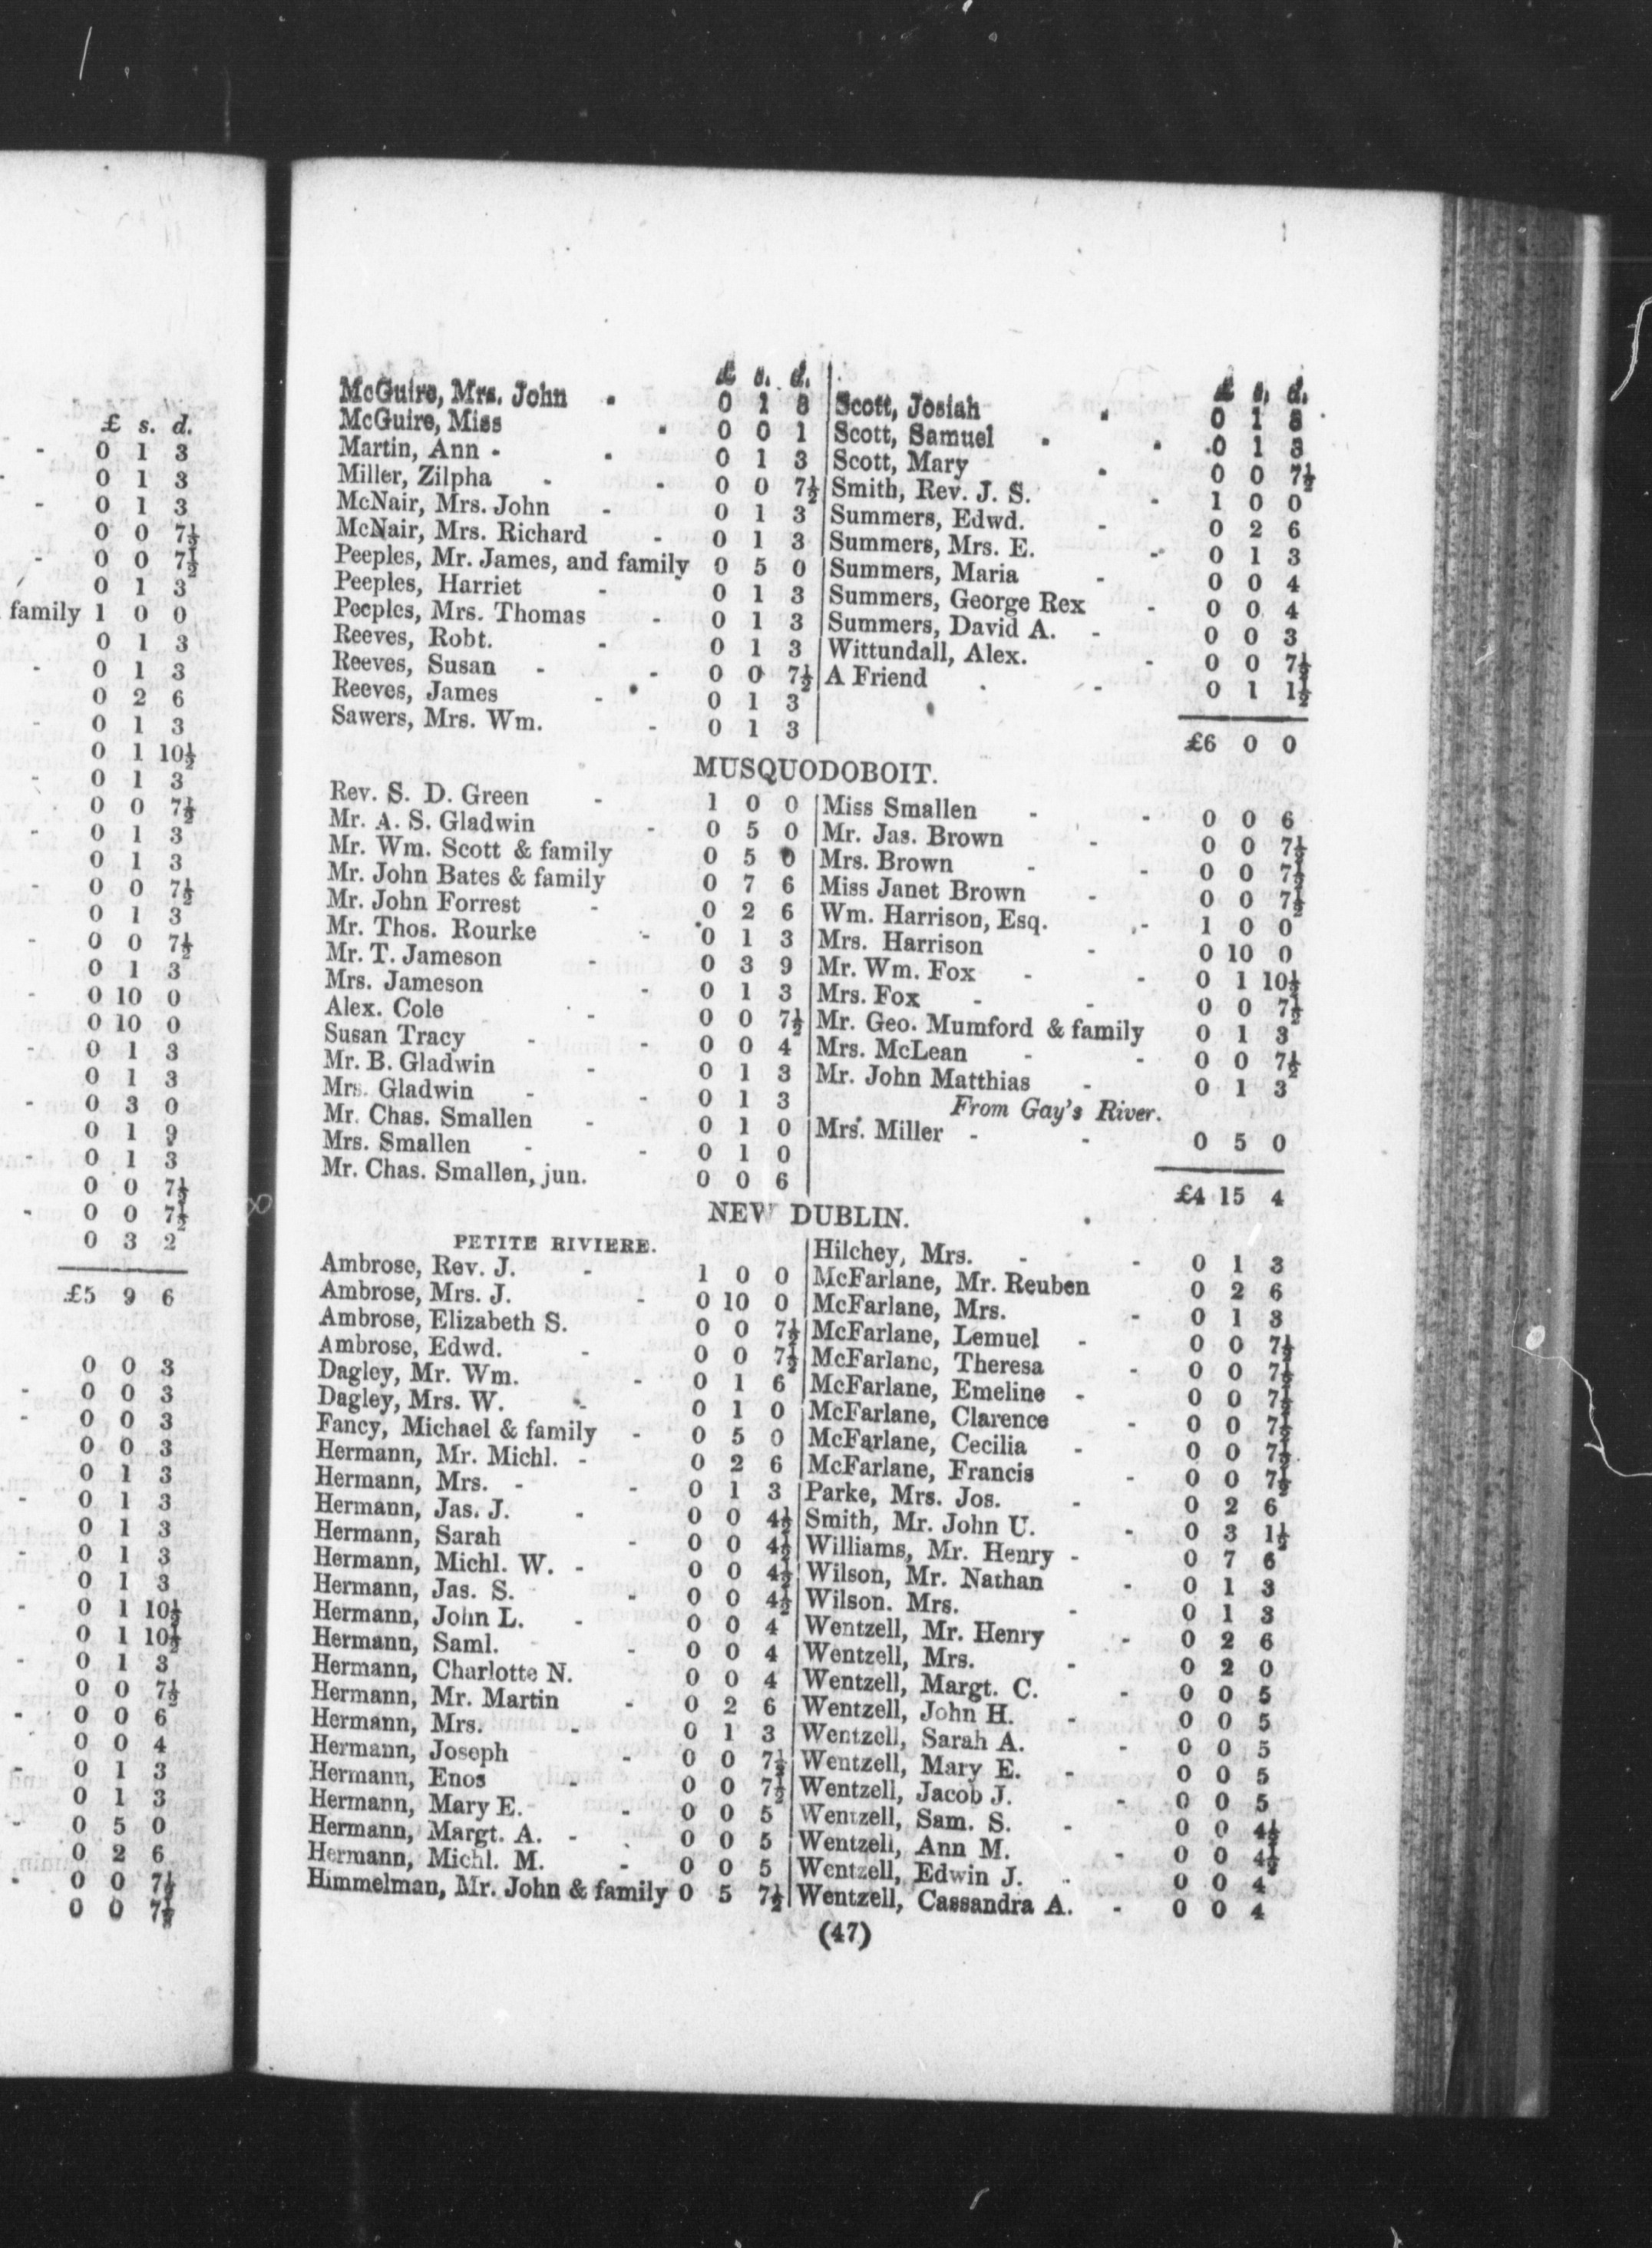 £ s. d.
- 0 1 3
- 0 1 3
- 0 1 3
0 0 7½
- 0 0 7½
0 1 3
family 1 0 0
0 1 3
0 1 3
0 2 6
0 1 3
0 1 10½
0 1 3
0 0 7½
0 1 3
0 1 3
0 0 7½
0 1 3
0 0 7½
0 1 3
0 10 0
0 10 0
0 1 3
0 1 3
0 3 0
0 1 9
0 1 3
0 0 7½
0 0 7½
0 3 2
£5 9 6
0 0 3
0 0 3
0 0 3
0 0 3
0 1 3
0 1 3
0 1 3
0 1 3
0 1 3
0 1 10½
0 1 10½
0 1 3
0 0 7½
0 0 6
0 0 4
0 1 3
0 1 3
0 5 0
0 2 6
0 0 7½
0 0 7½
£ s. d.
McGuire, Mrs. John - 0 1 3
McGuire, Miss - 0 0 1
Martin, Ann - - 0 1 3
Miller, Zilpha - - 0 0 7½
McNair, Mrs. John - 0 1 3
McNair, Mrs. Richard - 0 1 3
Peeples, Mr. James, and family 0 5 0
Peeples, Harriet - 0 1 3
Peeples, Mrs. Thomas - 0 1 3
Reeves, Robt. - 0 1 3
Reeves, Susan - - 0 0 7½
Reeves, James - 0 1 3
Sawers, Mrs. Wm. - 0 1 3
£ s. d.
Scott, Josiah - 0 1 3
Scott, Samuel - - 0 1 3
Scott, Mary - 0 0 7½
Smith, Rev. J. S. - 1 0 0
Summers, Edwd. - 0 2 6
Summers, Mrs. E. - 0 1 3
Summers, Maria - 0 0 4
Summers, George Rex - 0 0 4
Summers, David A. - 0 0 3
Wittundall, Alex. - 0 0 7½
A Friend - - 0 1 1½
£6 0 0
MUSQUODOBOIT.
Rev. S. D. Green - 1 0 0
Mr. A. S. Gladwin - 0 5 0
Mr. Wm. Scott & family 0 5 0
Mr. John Bates & family 0 7 6
Mr. John Forrest - 0 2 6
Mr. Thos. Rourke - 0 1 3
Mr. T. Jameson - 0 3 9
Mrs. Jameson - 0 1 3
Alex. Cole - 0 0 7½
Susan Tracy - - 0 0 4
Mr. B. Gladwin - 0 1 3
Mrs. Gladwin - - 0 1 3
Mr. Chas. Smallen - 0 1 0
Mrs. Smallen - - 0 1 0
Mr. Chas. Smallen, jun. 0 0 6
Miss Smallen - - 0 0 6
Mr. Jas. Brown - 0 0 7½
Mrs. Brown - - 0 0 7½
Miss Janet Brown - 0 0 7½
Wm. Harrison, Esq. - 1 0 0
Mrs. Harrison - 0 10 0
Mr. Wm. Fox - - 0 1 10½
Mrs. Fox - - 0 0 7½
Mr. Geo. Mumford & family 0 1 3
Mrs. McLean - - 0 0 7½
Mr. John Matthias - 0 1 3
From Gay's River.
Mrs. Miller - - 0 5 0
£4 15 4
NEW DUBLIN.
PETITE RIVIERE.
Ambrose, Rev. J. - 1 0 0
Ambrose, Mrs. J. - 0 10 0
Ambrose, Elizabeth S. 0 0 7½
Ambrose, Edwd. - 0 0 7½
Dagley, Mr. Wm. - 0 1 6
Dagley, Mrs. W. - 0 1 0
Fancy, Michael & family - 0 5 0
Hermann, Mr. Michl. - 0 2 6
Hermann, Mrs. - - 0 1 3
Hermann, Jas. J. - 0 0 4½
Hermann, Sarah - 0 0 4½
Hermann, Michl. W. - 0 0 4½
Hermann, Jas. S. - 0 0 4½
Hermann, John L. - 0 0 4
Hermann, Saml. - 0 0 4
Hermann, Charlotte N. 0 0 4
Hermann, Mr. Martin - 0 2 6
Hermann, Mrs. - 0 1 3
Hermann, Joseph - 0 0 7½
Hermann, Enos - 0 0 7½
Hermann, Mary E. - 0 0 5
Hermann, Margt. A. - 0 0 5
Hermann, Michl. M. - 0 0 5
Himmelman, Mr. John & family 0 5 7½
Hilchey, Mrs. - - 0 1 3
McFarlane, Mr. Reuben 0 2 6
McFarlane, Mrs. - 0 1 3
McFarlane, Lemuel - 0 0 7½
McFarlane, Theresa - 0 0 7½
McFarlane, Emeline - 0 0 7½
McFarlane, Clarence - 0 0 7½
McFarlane, Cecilia - 0 0 7½
McFarlane, Francis - 0 0 7½
Parke, Mrs. Jos. - 0 2 6
Smith, Mr. John U. - 0 3 1½
Williams, Mr. Henry - 0 7 6
Wilson, Mr. Nathan - 0 1 3
Wilson. Mrs. - 0 1 3
Wentzell, Mr. Henry - 0 2 6
Wentzell, Mrs. - 0 2 0
Wentzell, Margt. C. - 0 0 5
Wentzell, John H. - 0 0 5
Wentzell, Sarah A. - 0 0 5
Wentzell, Mary E. - 0 0 5
Wentzell, Jacob J. - 0 0 5
Wentzell, Sam. S. - 0 0 4½
Wentzell, Ann M. - 0 0 4½
Wentzell, Edwin J. - 0 0 4
Wentzell, Cassandra A. - 0 0 4
(47)